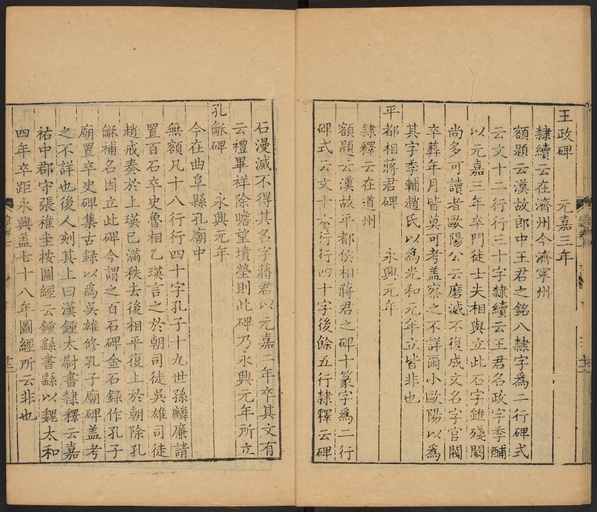 王政碑　元嘉三年
隸續云在濟州今濟寧州
額題云漢故郎中王君之銘八隸字為二行碑式
云文十二行行三十字隸續云王君名政字季輔
以元嘉三年卒門徒士夫相與立此石字雖殘闕
尚多可讀者歐陽公云磨滅不復成文名字官閥
卒葬年月皆莫可考蓋察之不詳爾小歐陽以為
其字季輔趙氏以為光和元年立皆非也
平都相蔣君碑　永興元年
隸釋云在道州
額題云漢故平都侯相蔣君之碑十篆字為二行
碑式云文十六行行四十字後餘五行隸釋云碑
石漫滅不得其名字蔣君以元嘉二年卒其文有
云禮畢祥除瞻望墳塋則此碑乃永興元年所立
孔龢碑　永興元年
今在曲阜縣孔廟中
無額凡十八行行四十字孔子十九世孫麟廉請
置百石卒史魯相乙瑛言之於朝司徒吳雄司徒
趙戒奏於上瑛已滿秩去後相平復上於朝除孔
龢補名因立此碑今謂之百石碑金石錄作孔子
廟置卒史碑集古錄以為吳雄修孔子廟碑蓋考
之不詳也後人刻其上曰漢鍾太尉書隸釋云嘉
祐中郡守張稚圭按圖經云鍾繇書繇以魏太和
四年卒距永興蓋七十八年圖經所云非也